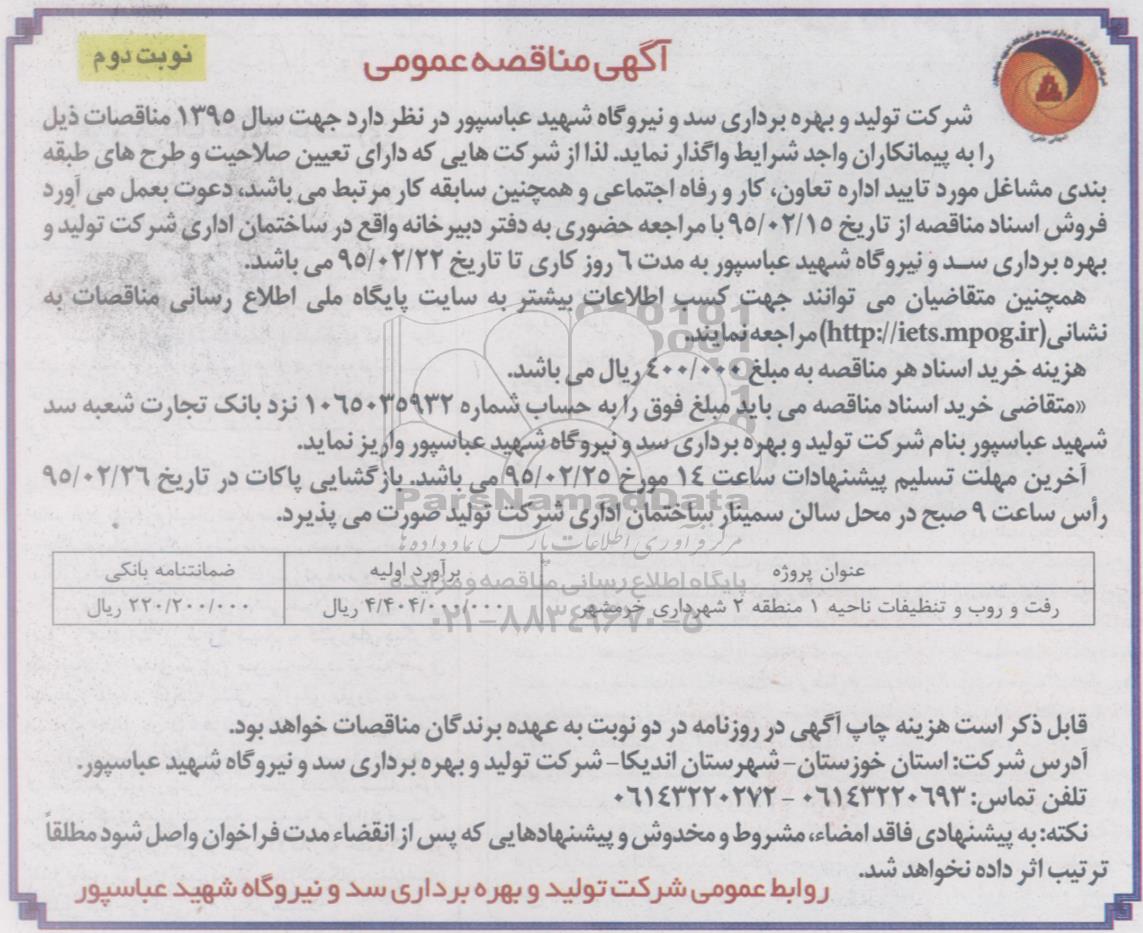 نوبت دوم
آگهی مناقصه عمومی
شرکت تولید و بهره برداری سد و نیروگاه شهید عباسپور در نظر دارد جهت سال ۱۳۹۵ مناقصات ذیل
را به پیمانکاران واجد شرایط واگذار نماید. لذا از شرکت هایی که دارای تعیین صلاحیت و طرح های طبقه
بندی مشاغل مورد تایید اداره تعاون، کار و رفاه اجتماعی و همچنین سابقه کار مرتبط می باشد، دعوت بعمل می آورد
فروش اسناد مناقصه از تاریخ ۹۵/۰۲/۱۵ با مراجعه حضوری به دفتر دبیرخانه واقع در ساختمان اداری شرکت تولید و
بهره برداری سد و نیروگاه شهید عباسپور به مدت ٦ روز کاری تا تاریخ ۹۵/۰۲/۲۲ می باشد.
همچنین متقاضیان می توانند جهت کسب اطلاعات بیشتر به سایت پایگاه ملی اطلاع رسانی مناقصات به
نشانی(http://iets.mpog.ir) مراجعه نمایند.
هزینه خرید اسناد هر مناقصه به مبلغ ٤۰۰/۰۰۰ ریال می باشد.
«متقاضی خرید اسناد مناقصه می باید مبلغ فوق را به حساب شماره ۱۰٦۵۰۳۵۹۳۲ نزد بانک تجارت شعبه سد
شهید عباسپور بنام شرکت تولید و بهره برداری سد و نیروگاه شهید عباسپور واریز نماید.
آخرین مهلت تسلیم پیشنهادات ساعت ۱٤ مورخ ۹۵/۰۲/۲۵ می باشد. بازگشایی پاکات در تاریخ ۹۵/۰۲/۲٦
رأس ساعت ۹ صبح در محل سالن سمینار ساختمان اداری شرکت تولید صورت می پذیرد.
ParsNamadData
مرکز فرآوری اطلاعات پارس نماد داده ها
پایگاه اطلاع رسانی مناقصه و مزایده
۰۲۱-۸۸۳٤۹٦۷۰-۵
عنوان پروژه برآورد اولیه ضمانتنامه بانکی
رفت و روب و تنظیفات ناحیه ۱ منطقه ۲ شهرداری خرمشهر ۴/۴۰۴/۰۰۰/۰۰۰ ریال ۲۲۰/۲۰۰/۰۰۰ ریال
قابل ذکر است هزینه چاپ آگهی در روزنامه در دو نوبت به عهده برندگان مناقصات خواهد بود.
آدرس شرکت: استان خوزستان- شهرستان اندیکا- شرکت تولید و بهره برداری سد و نیروگاه شهید عباسپور.
تلفن تماس: ۰٦۱٤۳۲۲۰٦۹۳ - ۰٦۱٤۳۲۲۰۲۷۲
نکته: به پیشنهادی فاقد امضاء، مشروط و مخدوش و پیشنهادهایی که پس از انقضاء مدت فراخوان واصل شود مطلقاً
ترتیب اثر داده نخواهد شد.
روابط عمومی شرکت تولید و بهره برداری سد و نیروگاه شهید عباسپور